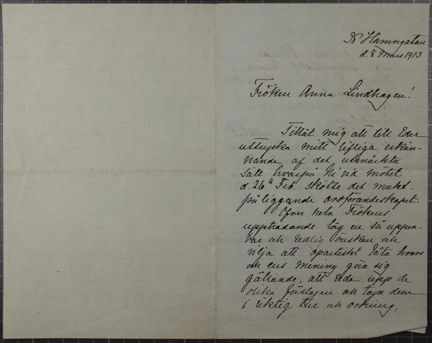 38 Hamngatan
d. 8 Mars 1913
Fröken Anna Lindhagen!
Tillåt mig att till Eder
uttrycka mitt lifliga erkän-
nande af det utmärkta
sätt hvarpå Ni vid mötet
d. 26te Feb. skötte det makt-
påliggande ordförandeskapet.
Öfver hela Frökens
uppträdande låg en så uppen-
bar och ädel önskan och
vilja att opartiskt låta hvars
och ens mening göra sig
gällande, att reda upp de
olika förslagen och taga dem
i riktig tur och ordning,